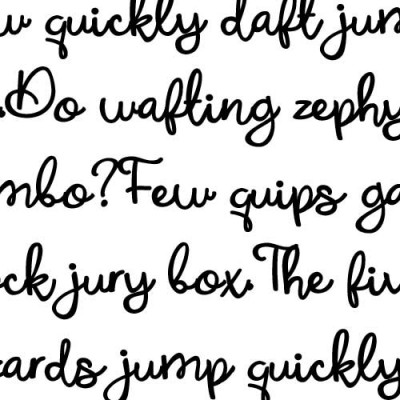 w quickly daft jum
.Do wafting zephy
mbo?Few quips ga
ock jury box.The fiv
ards jump quickly